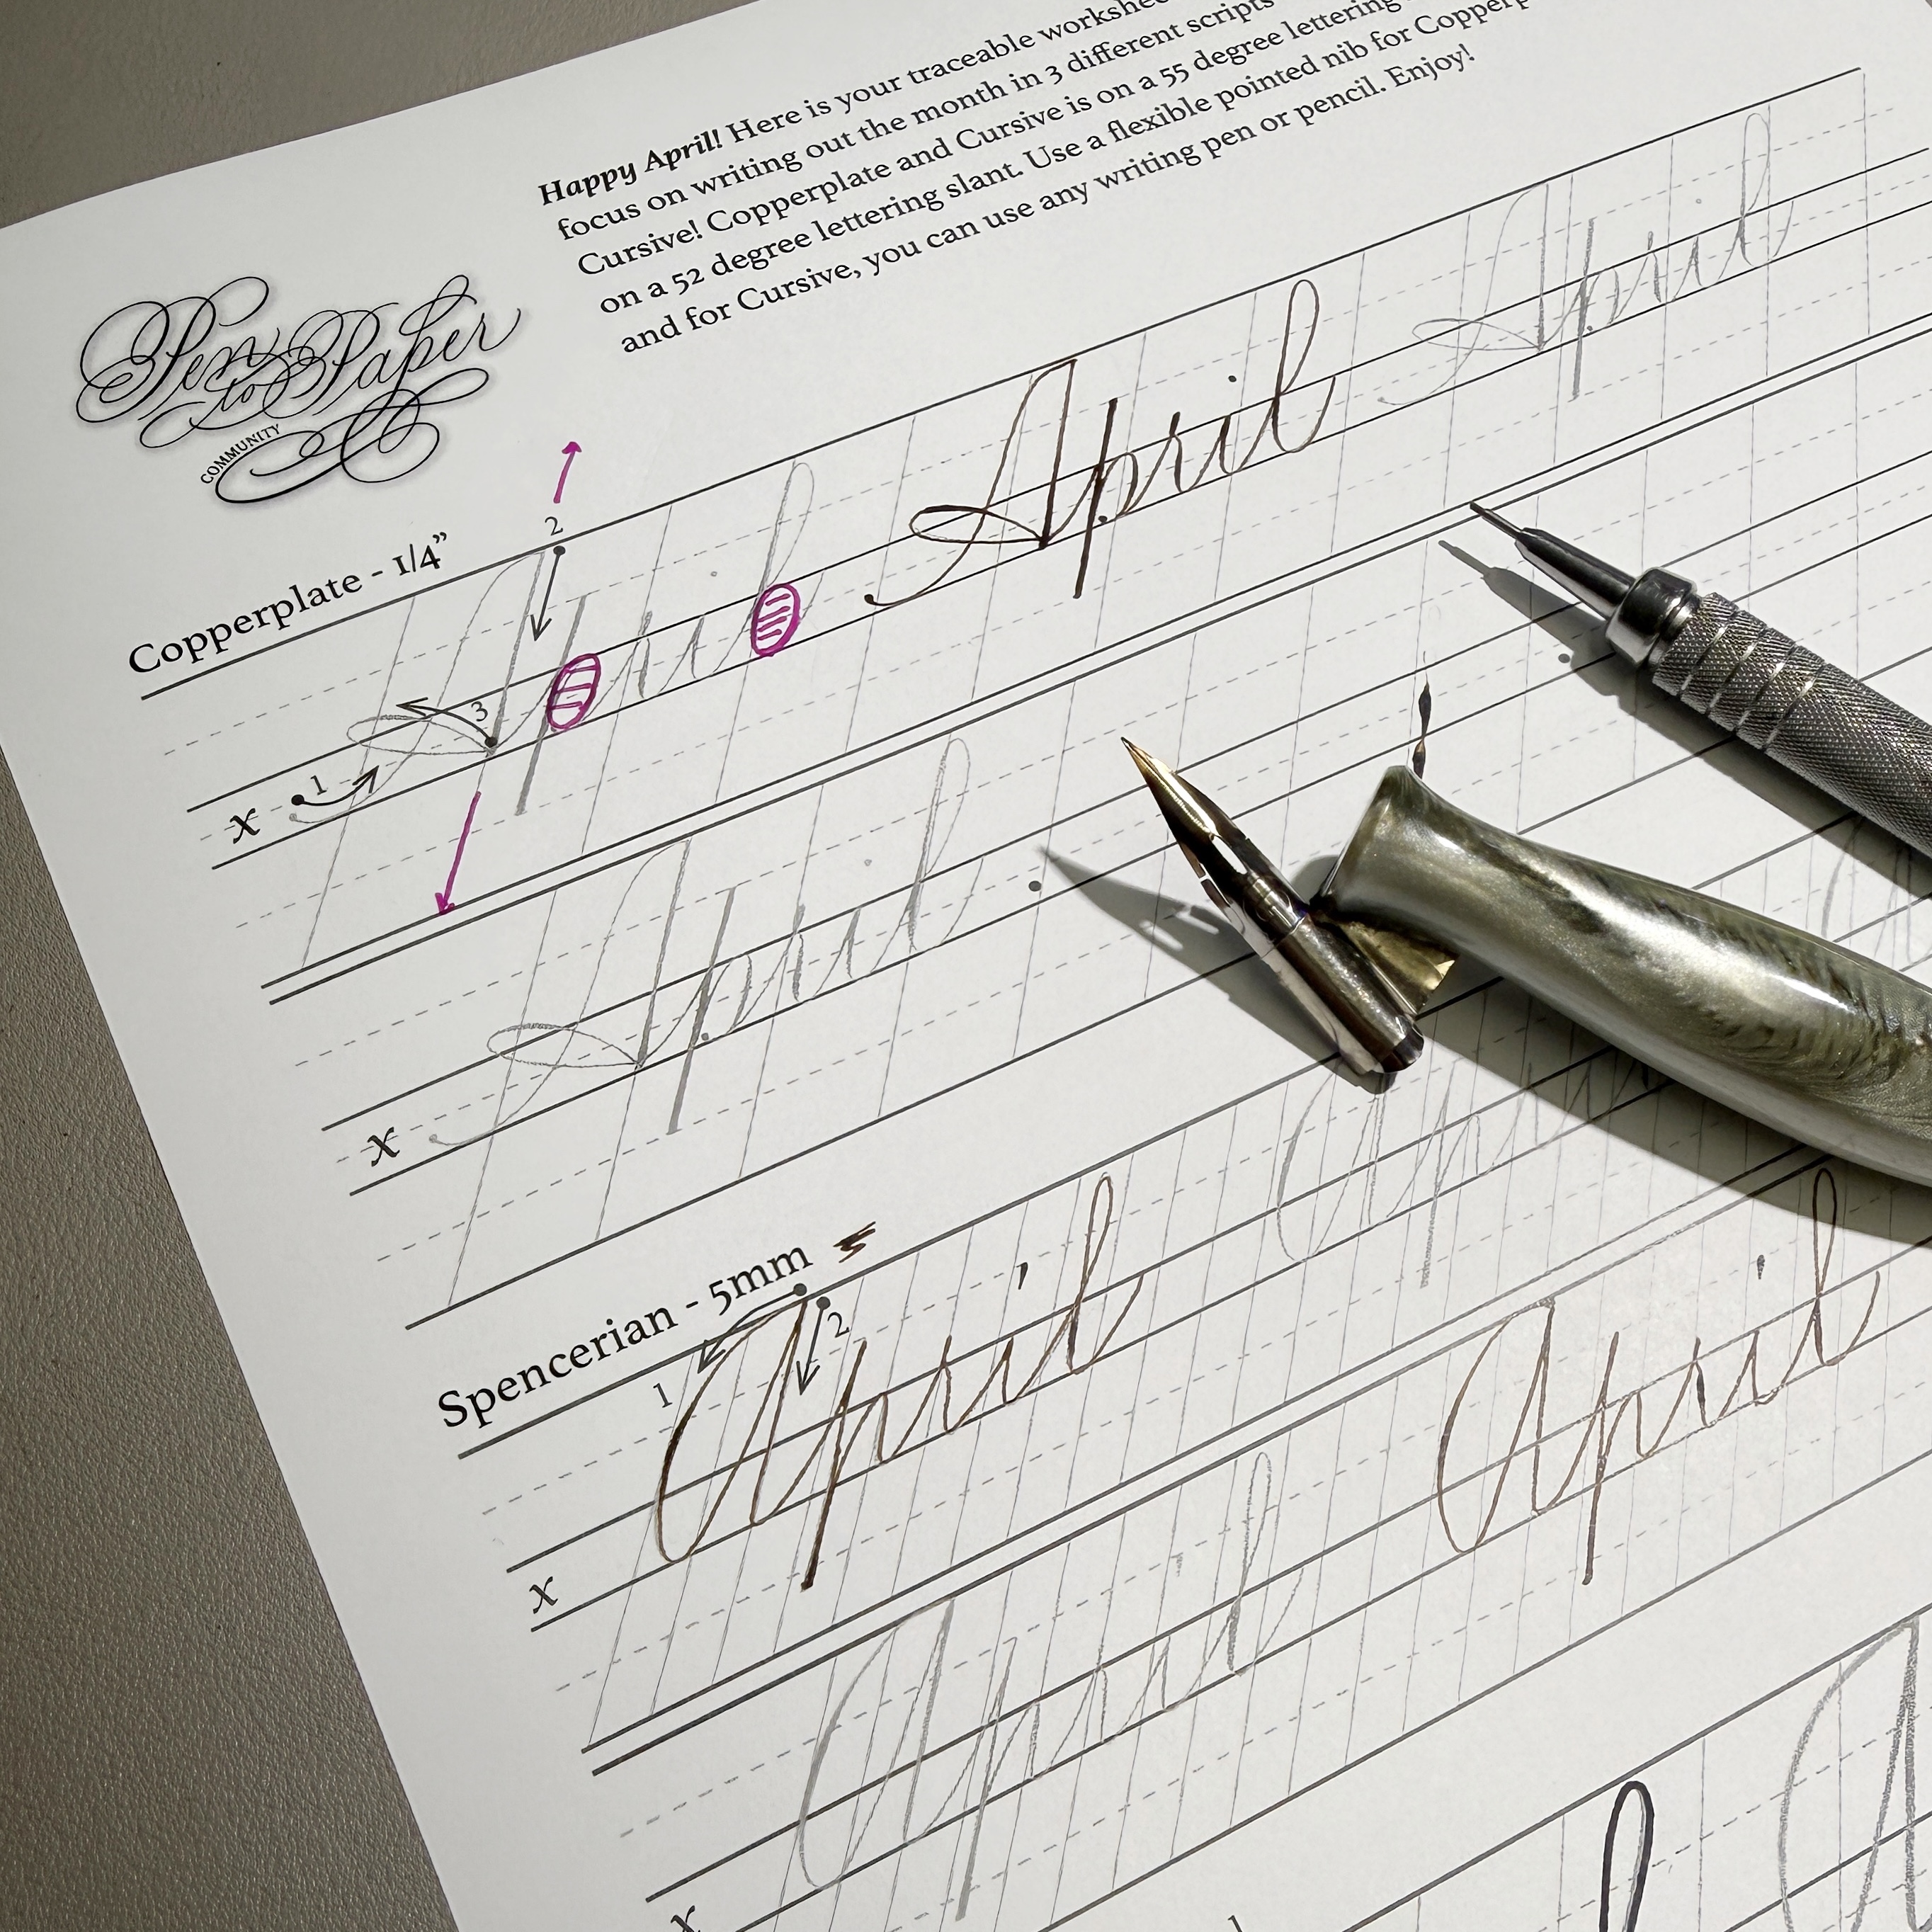 Happy April! Here is your traceable
focus on writing out the month in 3 different scripts
Cursive! Copperplate and Cursive is on a 55 degree lettering
on a 52 degree lettering slant. Use a flexible pointed nib for
and for Cursive, you can use any writing pen or pencil. Enjoy!
Pen to Paper
COMMUNITY
Copperplate - 1/4"
1 2 3
x April April April
x April
Spencerian - 5mm
1 2
x April April
April
x April